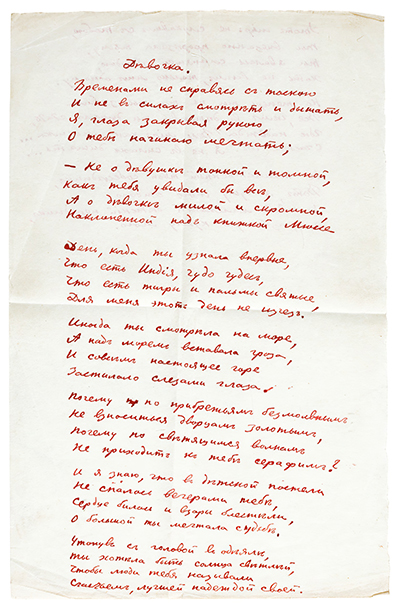 Дѣвочка.
Временами не справясь съ тоскою
И не въ силахъ смотрѣть и дышать,
Я, глаза закрывая рукою,
О тебѣ начинаю мечтать;
— Не о дѣвушкѣ тонкой и томной,
Какъ тебя увидали бы всѣ,
А о дѣвочкѣ милой и скромной,
Наклоненной надъ книжкой Мюссе
День, когда ты узнала впервые,
Что есть Индія, чудо чудесъ,
Что есть тигры и пальмы святыя,
Для меня этотъ день не изчезъ.
Иногда ты смотрѣла на море,
А надъ моремъ вставала гроза,
И совсѣмъ настоящее горе
Застилало слезами глаза.
Почему по прибрежьямъ безмолвнымъ
Не взноситься дворцамъ золотымъ,
Почему по свѣтящимся волнамъ
Не приходитъ къ тебѣ серафимъ?
И я знаю, что въ дѣтской постели
Не спалось вечерами тебѣ,
Сердце билось и взоры блестѣли,
О большой ты мечтала судьбѣ.
Утонувъ съ головой въ одѣялѣ,
Ты хотѣла быть солнца свѣтлѣй,
Чтобы люди тебя называли
Счастьемъ, лучшей надеждой своей.